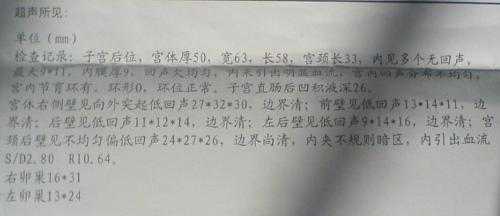 超声所见:
单位(mm)
检查记录: 子宫后位, 宫体厚50, 宽63, 长58, 宫颈长33, 内见多个无回声,
最大9*11, 内膜厚9, 回声欠均匀, 内未引出明显血流, 宫内回声分布不均匀,
宫内节育环有。环形O, 环位正常。子宫直肠后凹积液深26。
宫体右侧壁见向外突起低回声27*32*30, 边界清; 前壁见低回声13*14*11, 边
界清; 后壁见低回声11*12*14, 边界清; 左后壁见低回声9*14*16, 边界清; 宫
颈后壁见不均匀偏低回声24*27*26, 边界尚清, 内夹不规则暗区, 内引出血流
S/D2.80 RI0.64。
右卵巢16*31
左卵巢13*24